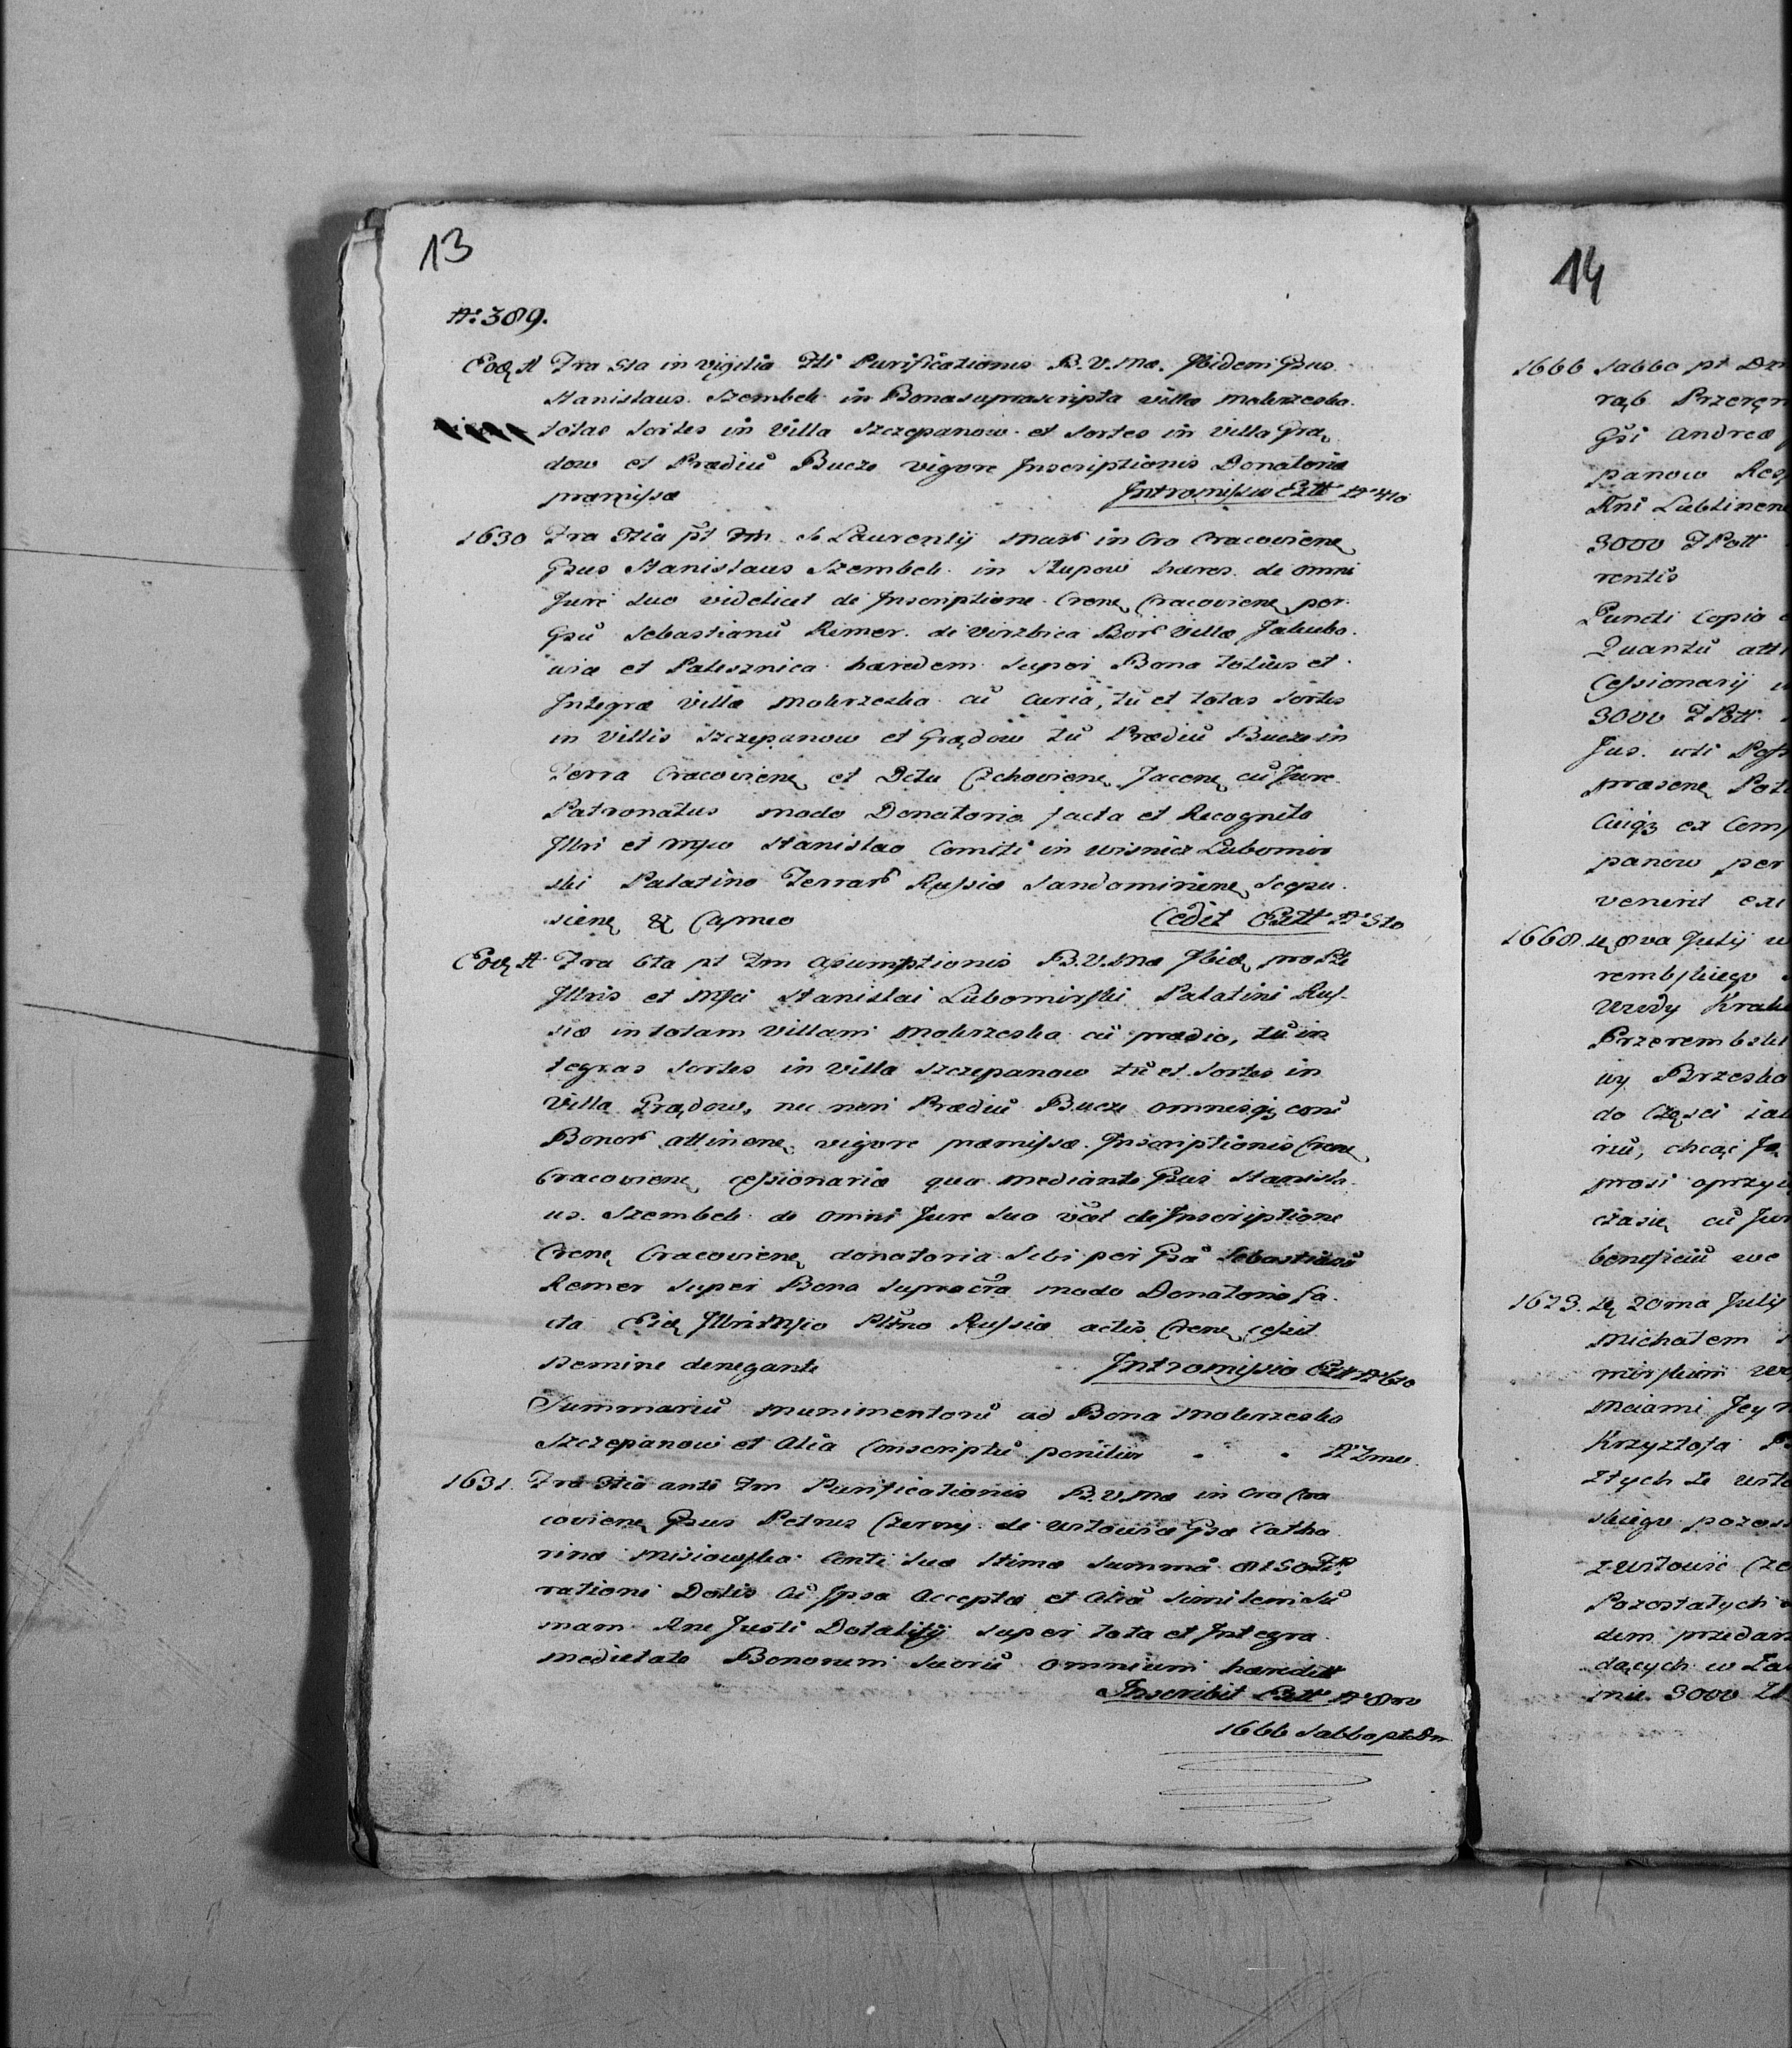 13
No 389.
Eodę A Fra 5ta in vigilia Fti Purificationis B.V.Mae. Ibidem Gsus
Stanislaus Szembek in Bona suprascripta villae Mokrzeska
totas Sortes in Villa Szczepanow et Sortes in Villa Grą
dow et Praediu Bucze vigore Inscriptionis Donatoriae
praemissae Intromissio Extt No 4to
1630 Fra 3tia pt Fm S. Laurentij Mar in Cro Cracoviene
Gsus Stanislaus Szembek in Słupow haeres de omni
Jure Suo videlicet de Inscriptione Crene Cracoviene per
Gsu Sebastianu Remer de Virzbica Bor Villae Jakubo
wia et Palesznica haeredem super Bona totius et
Integrae Villae Mokrzeska cu Curia, tu et totas Sortes
in Villis Szczepanow et Grądow tu Praediu Bucze in
Terra Cracoviene et Dctu Czchoviene Jacene cu Jure
Patronatus modo Donatorio facta et Recognito
Illri et Mfco Stanislao Comiti in Wisnicz Lubomir
ski Palatino Terrar Russiae Sandomiriene Scepu
siene & Capneo Cedit Extt No 5to
Eodę A Fra 6ta pt Fm Assumptionis B.V.Mae Ibidę pro Pte
Illris et Mfci Stanislai Lubomirski Palatini Rus
siae in totam Villam Mokrzeska cu praedio, tu in
tegras Sortes in Villa Szczepanow tu et Sortes in
Villa Grądow, nec non Praediu Bucze omnesqz coni
Bonor attinene vigore praemissae Inscriptionis Crene
Cracoviene cessionariae qua mediante Gsus Stanisla
us Szembek de omni Jure Suo vdet de Inscriptione
Crene Cracoviene donatoria Sibi per Gsu Sebastianu
Remer super Bona supra modo Donatorio fa
cta Eidę Illri Mfco Pltno Russiae actis Crene cessit
nemine denegante Intromissio Extt No 6to
Summariu munimentoru ad Bona Mokrzeska
Szczepanow et alia Conscriptu ponitur No 7mo
1631. Fra 3tia ante Fm Purificationis B.V.Mae in Cro Cra
coviene Gsus Petrus Czerny de Witowice Gsae Catha
rinae Misiowska Conti Suae Summa
rationi Dotis ab Ipsa Accepta et alia similem Su
mam Rne Justi Dotalitij super tota et Integra
medietate Bonorum Suoru omnium haeredit
Inscribit Extt No 8vo
1666 Sabbo pt Dn
14
1666 Sabbo pt Dn
rąb Przerę
Gsi Andreae
panow
Rni Lublinen
3000 F Poll
rentis
Puncti Copia
Quantu
Cessionarij
3000 F Poll
Jus. uti
praesene
Cuiqz ex
panow per
venerit
1668. 8va Julij
rembskiego
Urzędy
Przerembski
iry Brzesko
do Części
riu, chcąc
prosi
cu Jur
beneficiu
1673. 20ma Julij
Michałem
mirskim
Mciami Jey
Krzysztofa
Złych Ze
skiego
z Witowic
Pozostałych
dem przedan
dących w
mie 3000